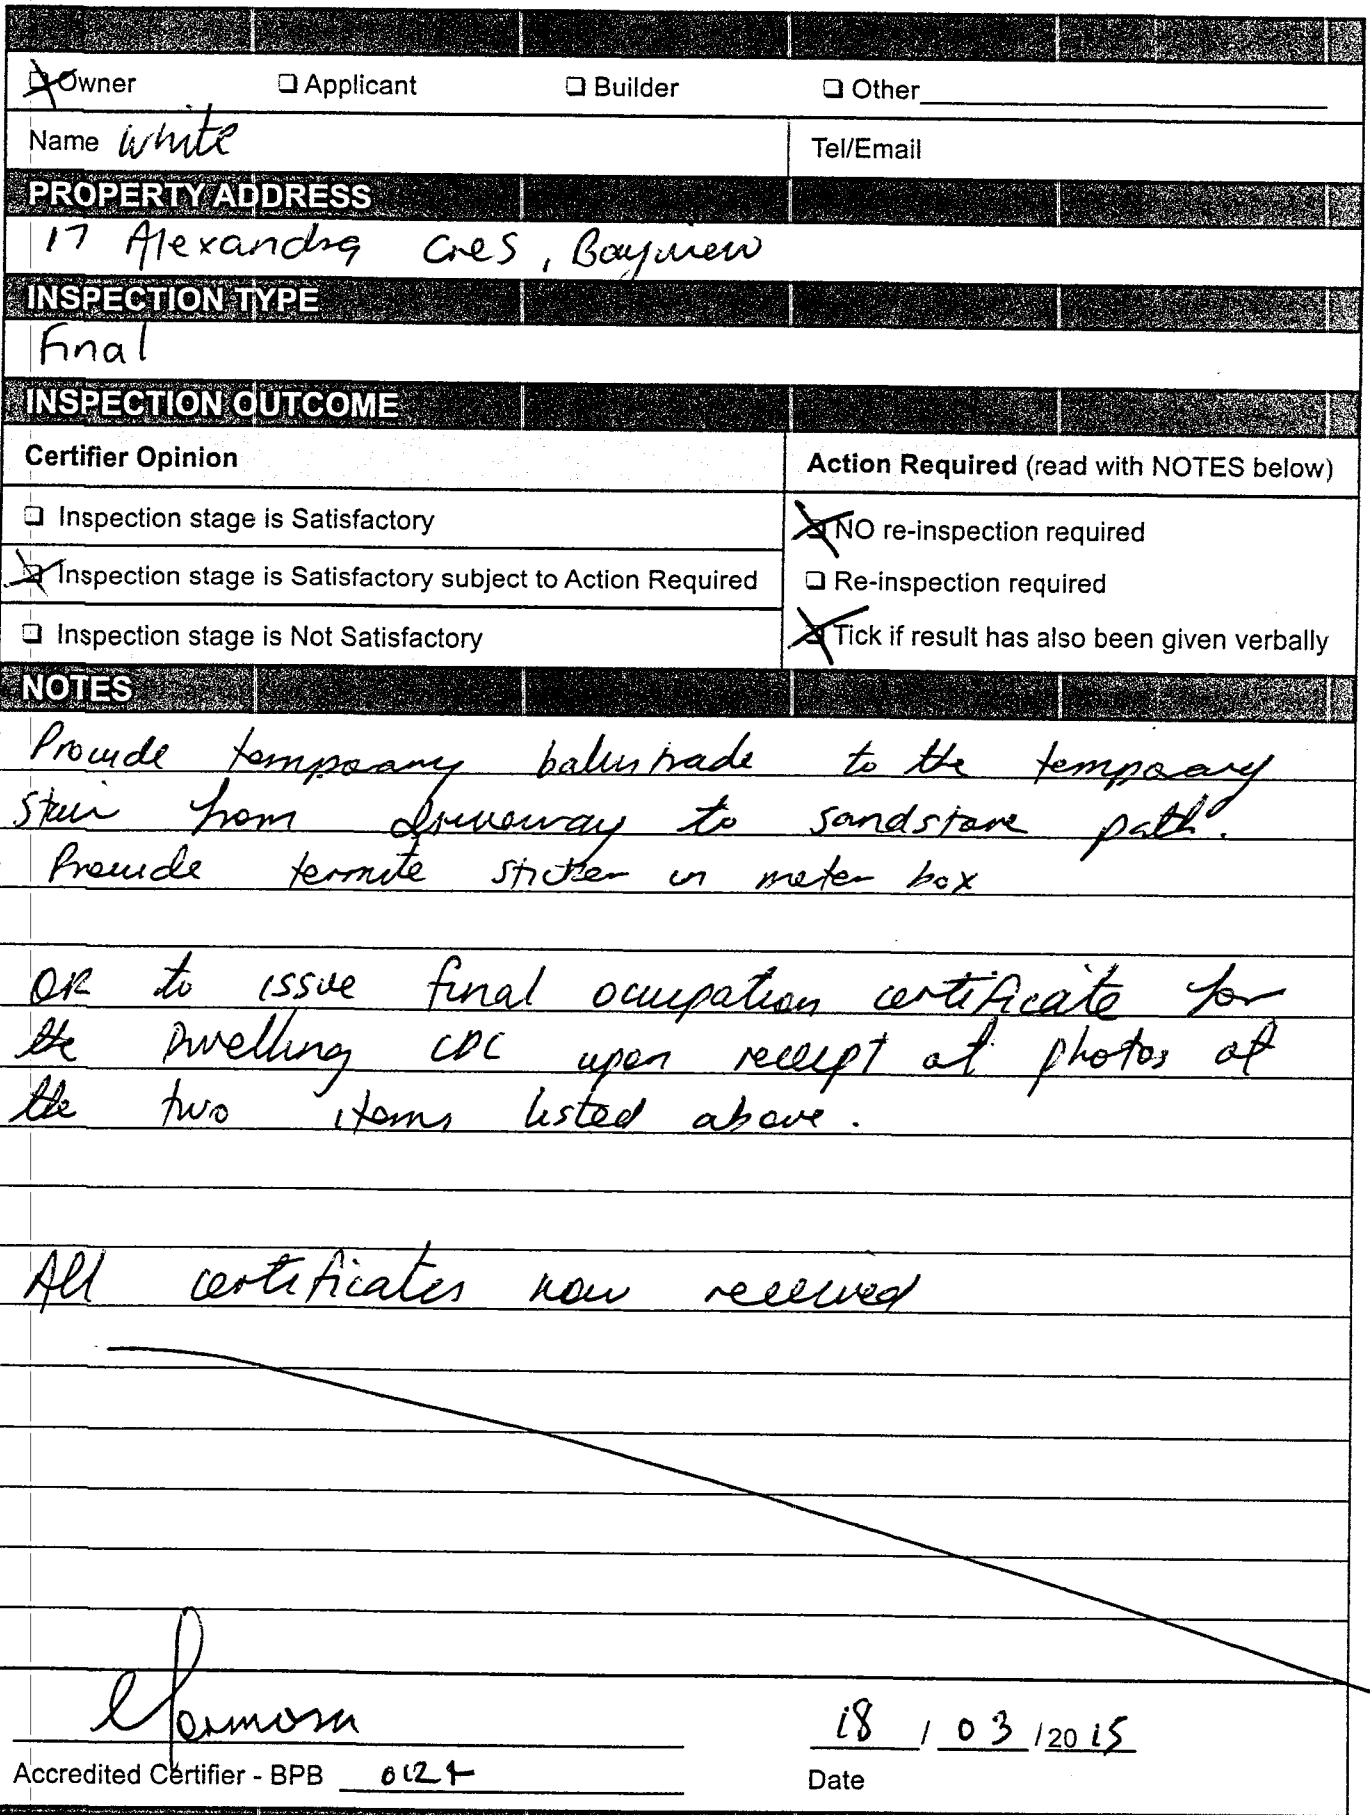 Owner Applicant Builder Other
Name White Tel/Email
PROPERTY ADDRESS
17 Alexandra Cres, Bayview
INSPECTION TYPE
Final
INSPECTION OUTCOME
Certifier Opinion Action Required (read with NOTES below)
Inspection stage is Satisfactory NO re-inspection required
Inspection stage is Satisfactory subject to Action Required Re-inspection required
Inspection stage is Not Satisfactory Tick if result has also been given verbally
NOTES
Provide temporary balustrade to the temporary
stair from driveway to sandstone path.
Provide termite sticker in meter box
OK to issue final occupation certificate for
the Dwelling CDC upon receipt of photos of
the two items listed above.
All certificates now received
18 / 03 / 2015
Accredited Certifier - BPB Date